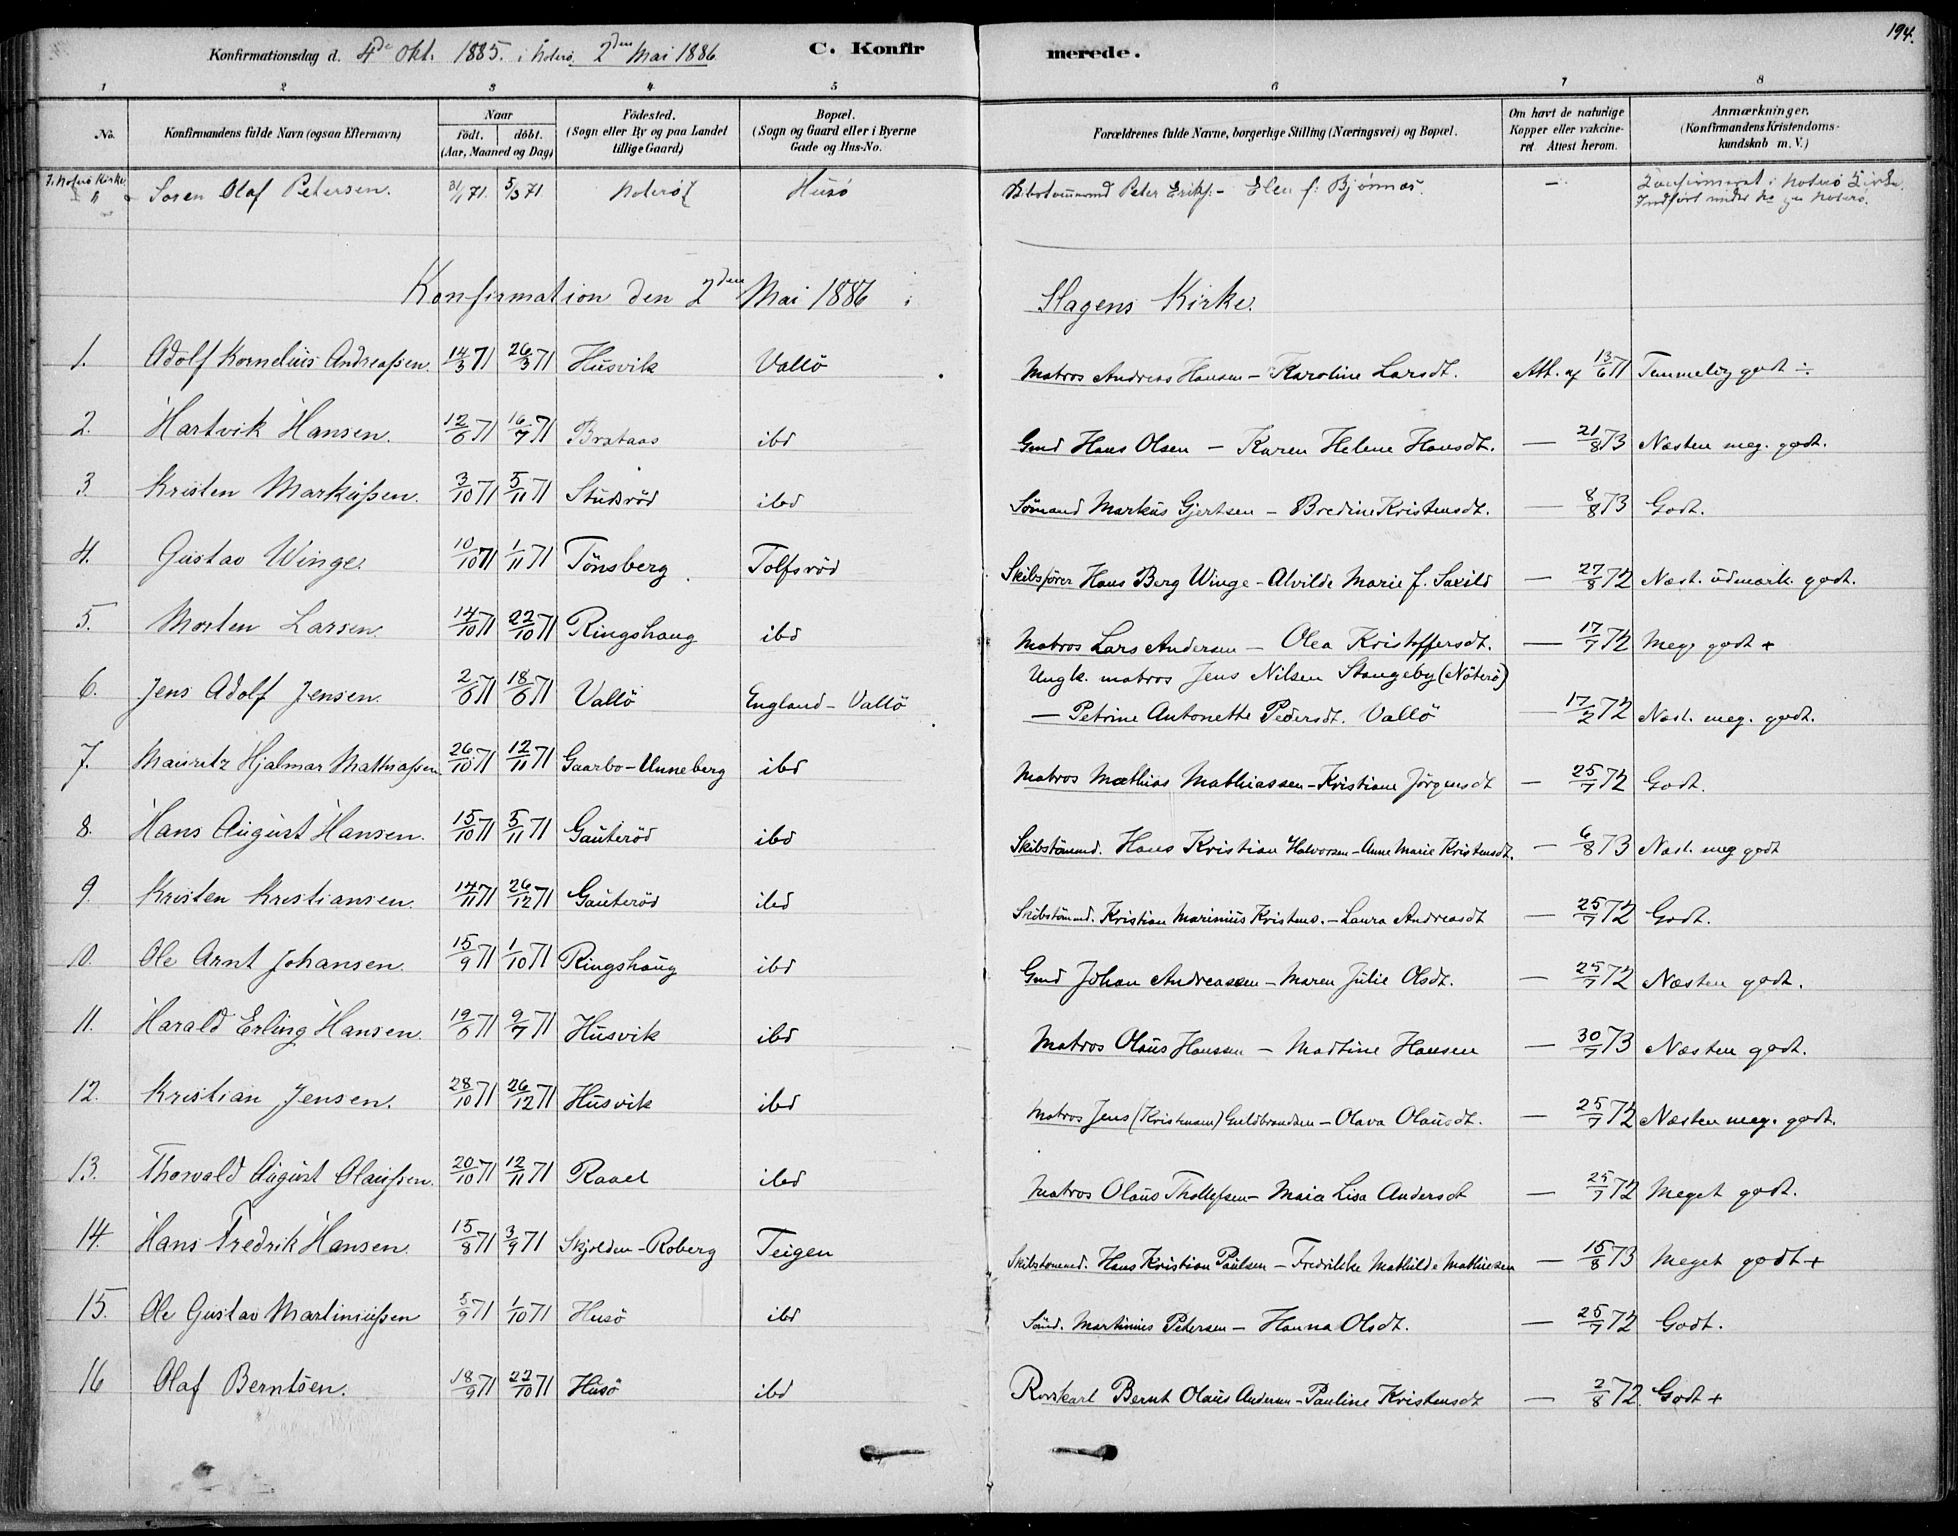 194.
Konfirmationsdag d. 4de Okt. 1885. i Nøterø 2den Mai 1886 C. Konfirmerede.
1 2 3 4 5 6 7 8
No. Konfirmandens fulde Navn (ogsaa Efternavn) Naar født. døbt. (Aar, Maaned og Dag) Fødested. (Sogn eller By og paa Landet tillige Gaard) Bopæl. (Sogn og Gaard eller i Byerne Gade og Hus-No. Forældrenes fulde Navne, borgerlige Stilling (Næringsvei) og Bopæl. Om havt de naturlige Kopper eller vakcineret. Attest herom. Anmærkninger. (Konfirmandens Kristendomskundskab m. V.)
I Nøterø Kirke " Søren Olaf Petersen. 31/1 71. 5/3 71 Nøterø Husø Peter Eriks. – Elen f. Bjønnes. – Konfirmeret i Nøterø Kirke. Indført under No Nøterø.
Konfirmation den 2den Mai 1886 i Slagens Kirke.
1. Adolf Kornelius Andreassen. 14/3 71 26/3 71 Husvik Vallø Matros Andreas Hansen – Karoline Larsdt. Att. af 13/6 71 Temmelig godt ÷
2. Hartvik Hansen. 12/6 71 16/7 71 Brataas ibd Gmd Hans Olsen – Karen Helene Hansdt. – 21/8 73 Næsten meg. godt.
3. Kristen Markussen. 3/10 71 5/11 71 Stubrød ibd Sømand Markus Gjertsen – Bredine Kristensdt. – 8/8 73 Godt.
4. Gustav Winge 10/10 71 1/11 71 Tønsberg Tolfsrød Skibsfører Hans Berg Winge – Alvilde Marie f. Saxild – 27/8 72 Næst. udmærk. godt.
5. Morten Larsen 14/10 71 22/10 71 Ringshaug ibd Matros Lars Andersen – Olea Kristoffersdt. – 17/7 72 Meg. godt +
6. Jens Adolf Jensen. 2/6 71 18/6 71 Vallø England – Vallø Ungk. matros Jens Nilsen Stangeby (Nøterø)
– Petrine Antonette Pedersdt. Vallø – 17/2 72 Næst. meg. godt.
7. Mauritz Hjalmar Mathiassen 26/10 71 12/11 71 Gaarbo – Unneberg ibd Matros Mathias Mathiassen – Kristiane Jørgensdt – 25/7 72 Godt.
8. Hans August Hansen. 15/10 71 5/11 71 Gauterød ibd Skibstømmd. Hans Kristian Halvorsen – Anne Marie Kristensdt. – 6/8 73 Næst. meg godt
9. Kristen Kristiansen. 14/11 71 26/12 71 Gauterød ibd Skibstømmd. Kristian Marinius Kristens. – Laura Andreasdt – 25/7 72 Godt.
10. Ole Arnt Johansen. 15/9 71 1/10 71 Ringshaug ibd Gmd Johan Andreassen – Maren Julie Olsdt. – 25/7 72 Næsten godt.
11. Harald Erling Hansen. 19/6 71 9/7 71 Husvik ibd Matros Olaus Hansen – Martine Hansen – 30/7 73 Næsten godt.
12. Kristian Jensen. 28/10 71 26/12 71 Husvik ibd Matros Jens (Kristensen) Guldbrandsen – Olava Olausdt. – 25/7 72 Næsten meg. godt.
13. Thorvald August Olaussen. 20/10 71 12/11 71 Raael ibd Matros Olaus Thollefsen – Maia Lisa Andersdt – 25/7 72 Meget godt.
14. Hans Fredrik Hansen. 15/8 71 3/9 71 Skjolden – Roberg Teigen Skibstømmd. Hans Kristian Paulsen – Fredrikke Mathilde Mathiesen – 15/8 73 Meget godt +
15. Ole Gustav Martiniussen 5/9 71 1/10 71 Husø ibd Sømd. Martinius Petersen – Hanna Olsdt. – 25/7 72 Godt.
16 Olaf Berntsen. 18/9 71 22/10 71 Husø ibd Rorskarl Bernt Olaus Andersen – Pauline Kristensdt – 2/8 72. Godt +